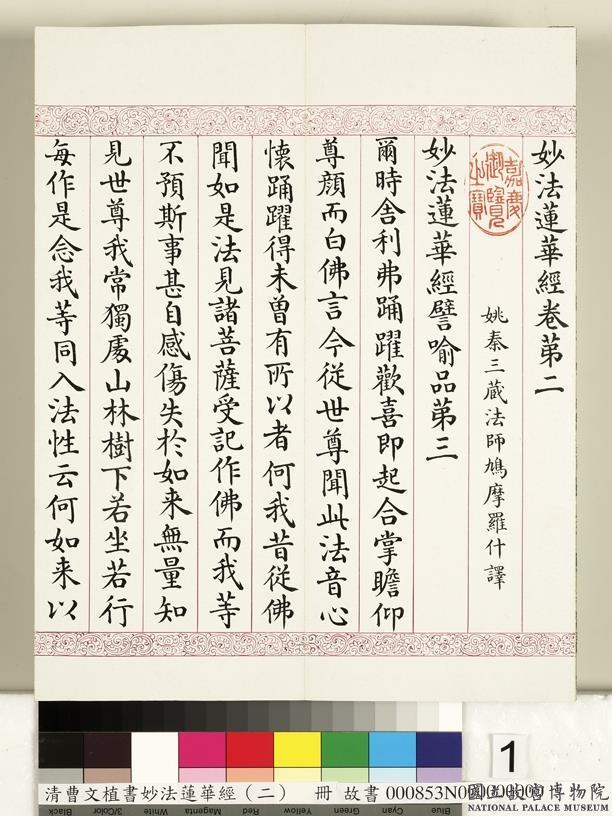 妙法蓮華經卷第二
嘉慶
御覽
之寶
姚秦三藏法師鳩摩羅什譯
妙法蓮華經譬喻品第三
爾時舍利弗踊躍歡喜即起合掌瞻仰
尊顏而白佛言今從世尊聞此法音心
懷踊躍得未曾有所以者何我昔從佛
聞如是法見諸菩薩受記作佛而我等
不預斯事甚自感傷失於如來無量知
見世尊我常獨處山林樹下若坐若行
每作是念我等同入法性云何如來以
1
清曹文植書妙法蓮華經（二） 冊 故書 000853N000000000
國立故宮博物院
NATIONAL PALACE MUSEUM
Black 3/Color White Magenta Red Yellow Green Cyan Blue